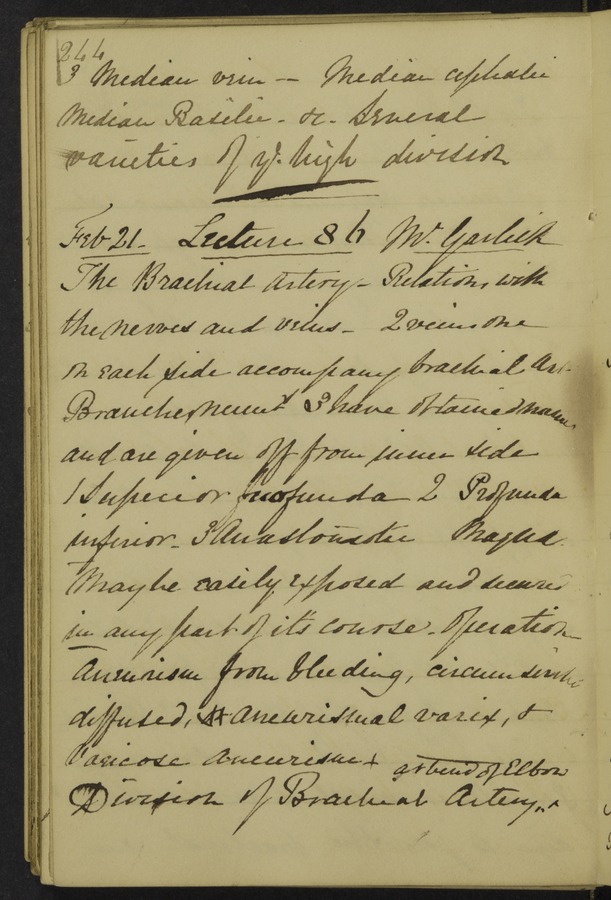 244
3 Median vein — Median cephalic
Median Basilic - &c - Several
varieties of ye. high division
Feb 21 - Lecture 86 Mr. Garlick
The Brachial Artery - Relations with
the nerves and veins - 2 veins one
on each side accompany brachial Art.
Branches 3 have obtained names
and are given off from inner side
1 Superior profunda 2 Profunda
inferior - 3 Anastomotic Magna.
May be easily exposed and secured
in any part of it's course - Operation
Aneurism from bleeding, circumscribed
diffused, Aneurismal varix, &
Varicose aneurism +
at bend of Elbow
Division of Brachial Artery